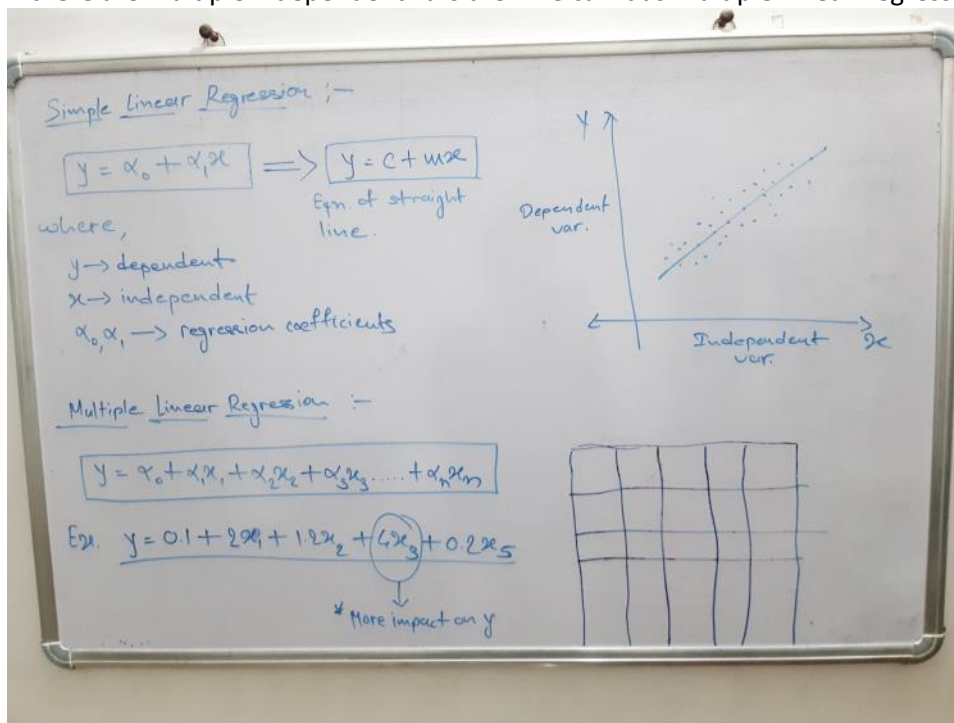 Simple Linear Regression :-
y = α₀ + α₁x ⇒ y = c + mx
Eqn. of straight line.
where,
y → dependent
x → independent
α₀, α₁ → regression coefficients
Y
Dependent var.
Independent var.
x
Multiple Linear Regression :-
y = α₀ + α₁x₁ + α₂x₂ + α₃x₃ ..... + αₙxₙ
Ex. y = 0.1 + 2x₁ + 1.2x₂ + 4x₃ + 0.2x₅
* More impact on y